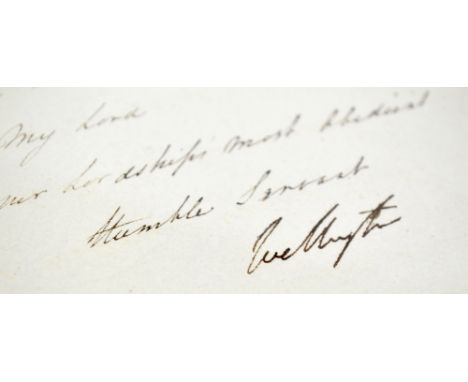 My Lord
your Lordships most obedient
Humble Servant
Wellington